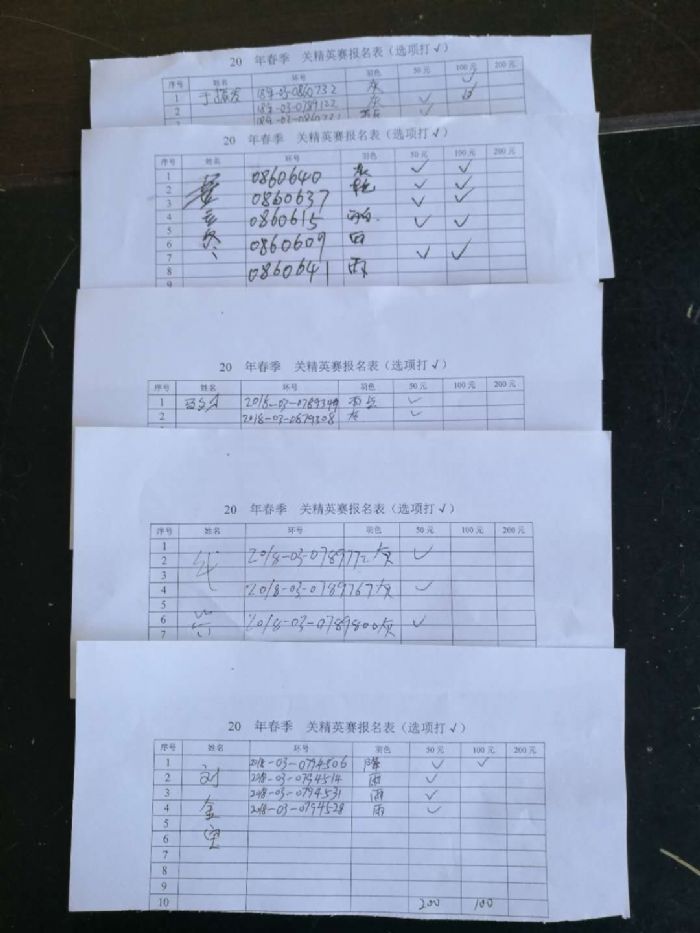 20 年春季 关精英赛报名表（选项打√）
序号 姓名 环号 羽色 50元 100元 200元
√
1 于振发 18年-03-0860732 灰 √
2 18年-03-0789122 灰 √
3 √
20 年春季 关精英赛报名表（选项打√）
序号 姓名 环号 羽色 50元 100元 200元
1 0860640 √ √
2 √ √
3 0860637 √ √
4
5 0860615 √ √
6 0860609 白
7 √ √
8 0860641 雨
9
20 年春季 关精英赛报名表（选项打√）
序号 姓名 环号 羽色 50元 100元 200元
1 2018-03-0789349 √
2 2018-03-0879308 灰 √
20 年春季 关精英赛报名表（选项打√）
序号 姓名 环号 羽色 50元 100元 200元
1
2 2018-03-0789772 灰 √
4 2018-03-0789767 灰 √
5
6 2018-03-0789800 灰 √
7
20 年春季 关精英赛报名表（选项打√）
序号 姓名 环号 羽色 50元 100元 200元
1 刘金宝 2018-03-0794506 降 √ √
2 2018-03-0794514 雨 √
3 2018-03-0794531 雨 √
4 2018-03-0794528 雨 √
5
6
7
8
9
10 200 100